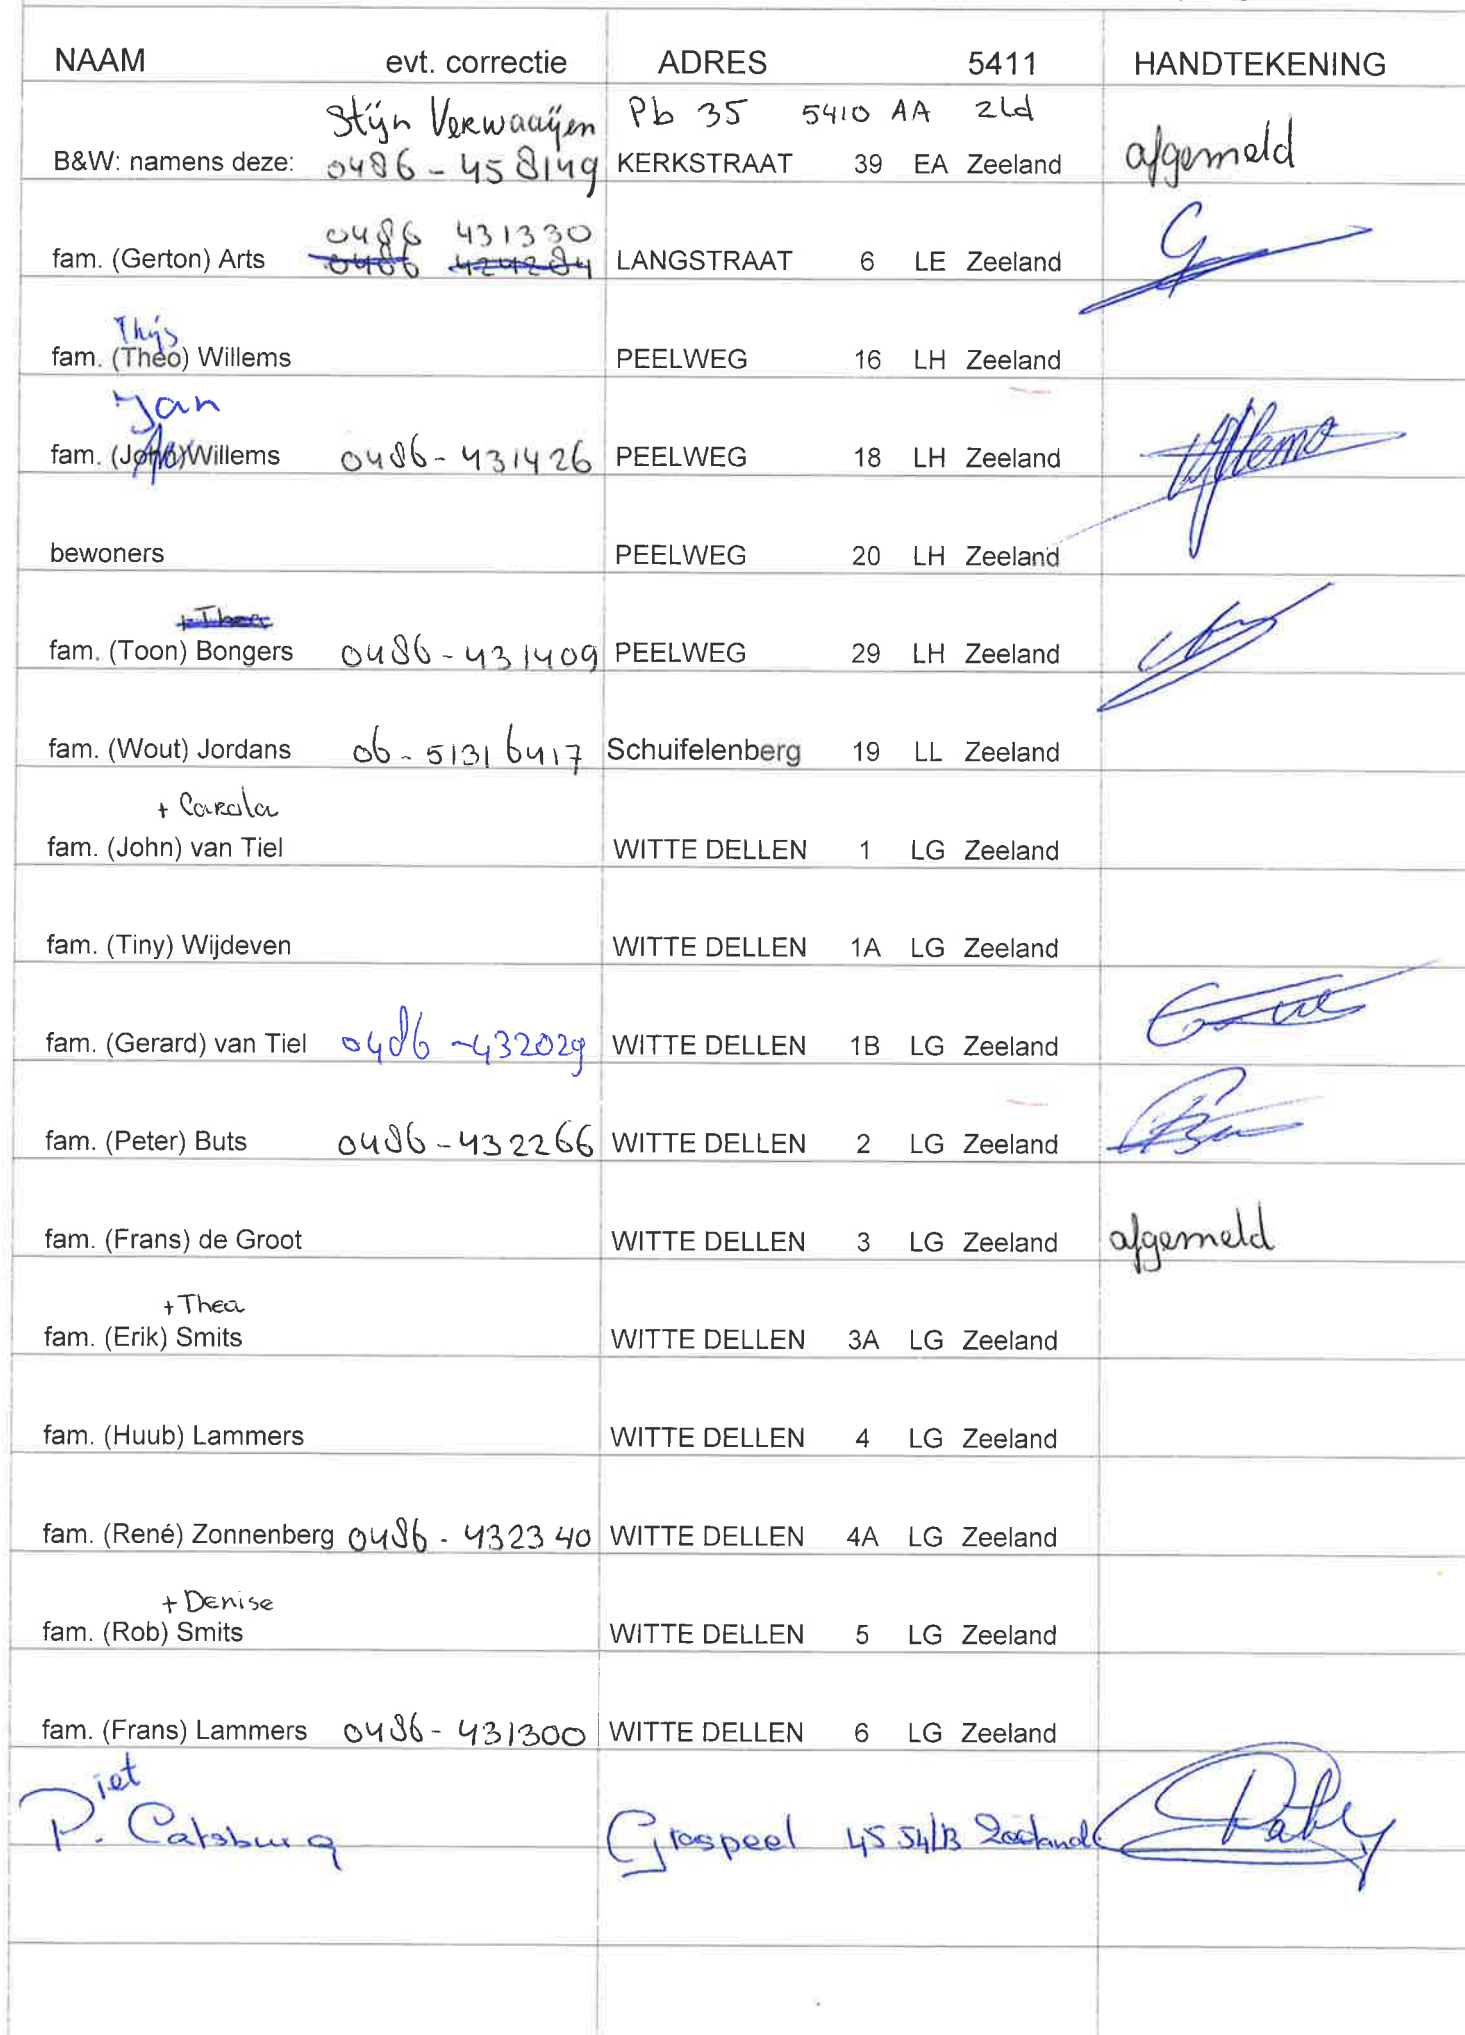 NAAM evt. correctie ADRES 5411 HANDTEKENING
Stijn Verwaaijen Pb 35 5410 AA Zld
B&W: namens deze: 0486-458149 KERKSTRAAT 39 EA Zeeland afgemeld
0486 431330
fam. (Gerton) Arts 0486 424284 LANGSTRAAT 6 LE Zeeland
Thijs
fam. (Theo) Willems PEELWEG 16 LH Zeeland
Jan
fam. Willems 0486-431426 PEELWEG 18 LH Zeeland
bewoners PEELWEG 20 LH Zeeland
+ Thea
fam. (Toon) Bongers 0486-431409 PEELWEG 29 LH Zeeland
fam. (Wout) Jordans 06-51316417 Schuifelenberg 19 LL Zeeland
+ Carola
fam. (John) van Tiel WITTE DELLEN 1 LG Zeeland
fam. (Tiny) Wijdeven WITTE DELLEN 1A LG Zeeland
fam. (Gerard) van Tiel 0486-432029 WITTE DELLEN 1B LG Zeeland
fam. (Peter) Buts 0486-432266 WITTE DELLEN 2 LG Zeeland
fam. (Frans) de Groot WITTE DELLEN 3 LG Zeeland afgemeld
+ Thea
fam. (Erik) Smits WITTE DELLEN 3A LG Zeeland
fam. (Huub) Lammers WITTE DELLEN 4 LG Zeeland
fam. (René) Zonnenberg 0486-432340 WITTE DELLEN 4A LG Zeeland
+ Denise
fam. (Rob) Smits WITTE DELLEN 5 LG Zeeland
fam. (Frans) Lammers 0486-431300 WITTE DELLEN 6 LG Zeeland
Piet
P. Catsburg Graspeel 45 Zeeland